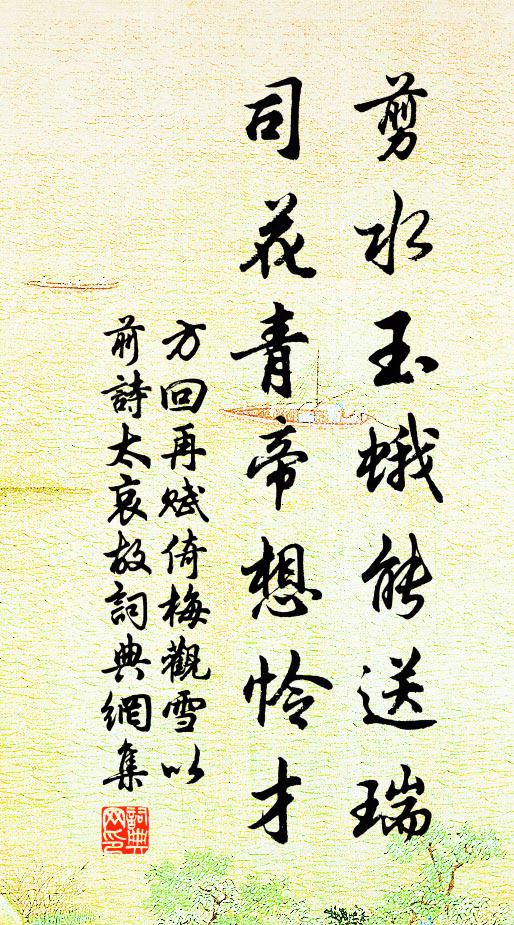 剪水玉蛾能送瑞
司花青帝想怜才
方回再赋倚梅觀雪以
前詩太哀故詞典網集
詞典网印